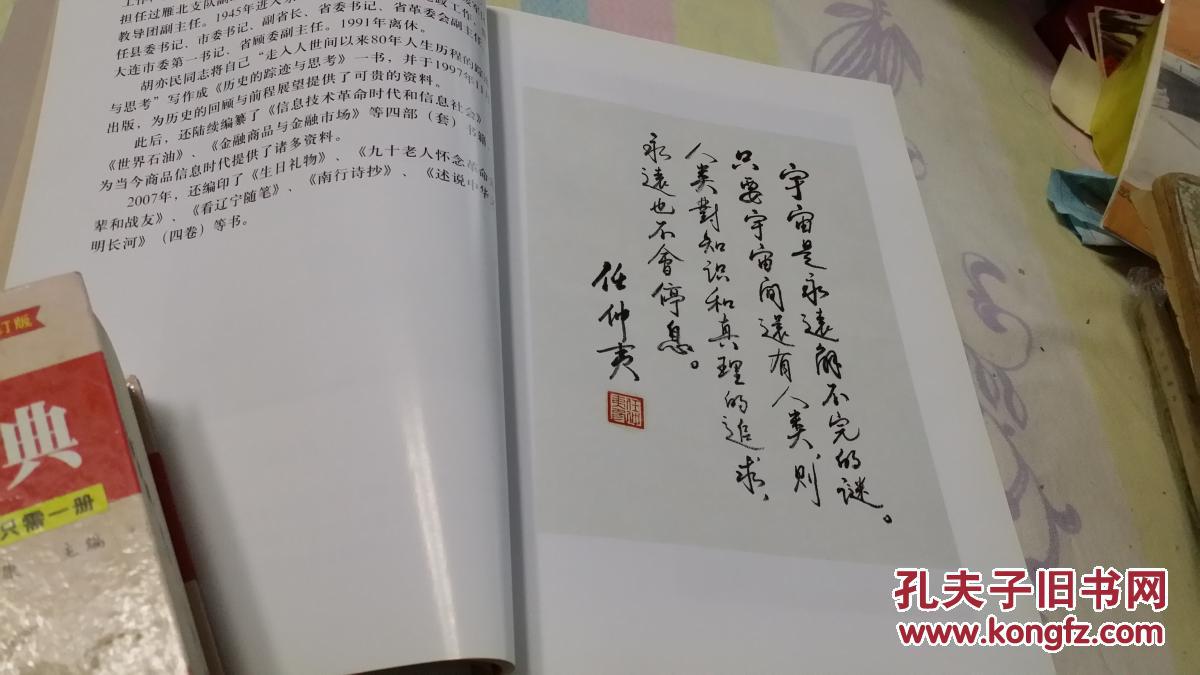 担任过雁北支队副
教导团副主任。1945年进入东
任县委书记、市委书记、副省长、省委书记、省革委会副主任
大连市委第一书记、省顾委副主任。1991年离休。
胡亦民同志将自己“走入人世间以来80年人生历程的踪
与思考”写作成《历史的踪迹与思考》一书，并于1997年
出版，为历史的回顾与前程展望提供了可贵的资料。
此后，还陆续编纂了《信息技术革命时代和信息社会》
《世界石油》、《金融商品与金融市场》等四部（套）书籍
为当今商品信息时代提供了诸多资料。
2007年，还编印了《生日礼物》、《九十老人怀念革命
辈和战友》、《看辽宁随笔》、《南行诗抄》、《述说中华
明长河》（四卷）等书。
宇宙是永遠解不完的謎。
只要宇宙间還有人类則
人类對知识和真理的追求、
永遠也不會停息。
任仲夷
订版
典
只需一册
主编
孔夫子旧书网
www.kongfz.com